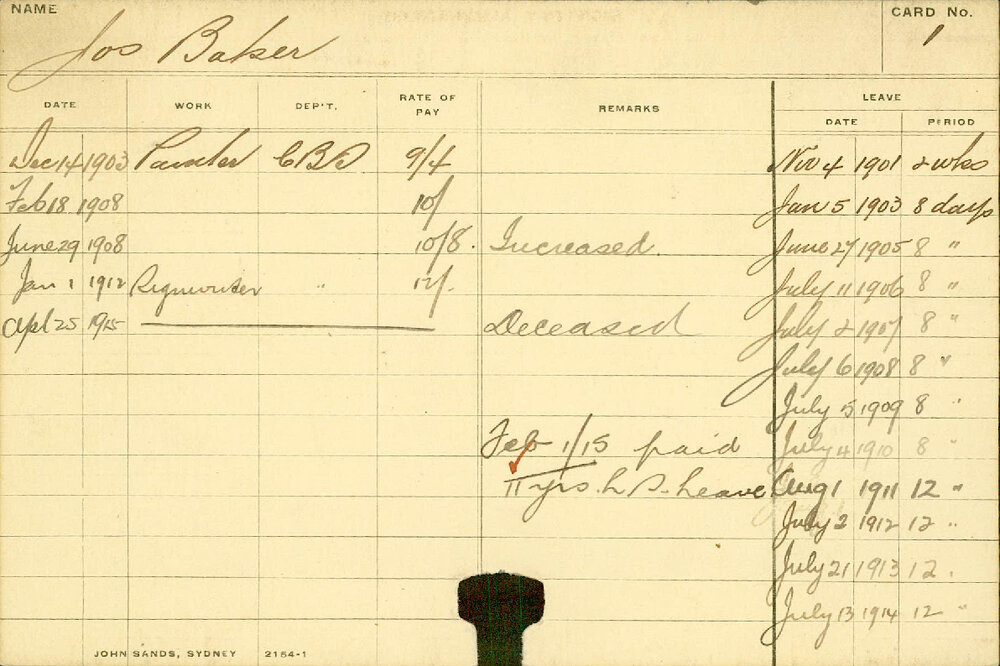 NAME
CARD No.
Jos Baker
1
DATE WORK DEP'T. RATE OF PAY REMARKS LEAVE
DATE PERIOD
Dec 14 1903 Painter 9/4 Nov 4 1901 2 wks
Feb 18 1908 10/ Jan 5 1903 8 days
June 29 1908 10/8. Increased. June 27 1905 8 "
Jan 1 1912 Signwriter " 12/. July 11 1906 8 "
Apl 25 1915 Deceased July 2 1907 8 "
July 6 1908 8 "
July 5 1909 8 "
Feb 1/15 paid July 4 1910 8 "
11 yrs. L.S. Leave Aug 1 1911 12 "
July 2 1912 12 "
July 21 1913 12 .
July 13 1914 12 "
JOHN SANDS, SYDNEY 2154-1